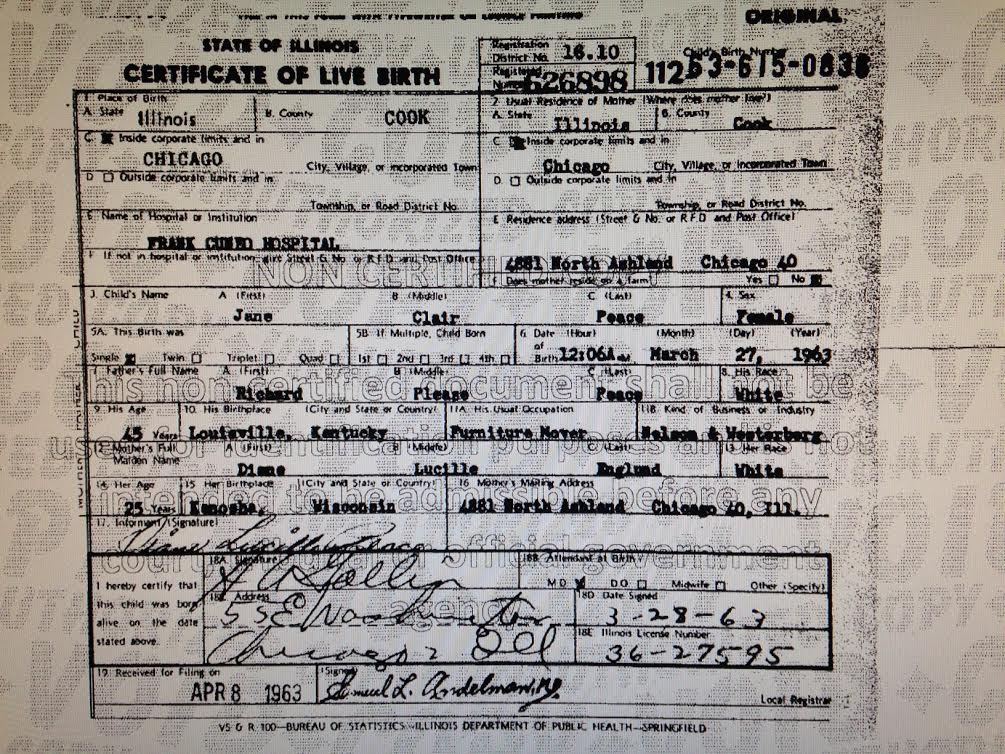 ORIGINAL
STATE OF ILLINOIS
CERTIFICATE OF LIVE BIRTH
Registration District No. 16.10
Registered Number 626898
Child's Birth Number
1. Place of Birth
A. State Illinois
B. County COOK
2. Usual Residence of Mother (Where does mother live?)
A. State Illinois
B. County Cook
C. Inside corporate limits and in
CHICAGO
City, Village, or incorporated Town
C Inside corporate limits and in
Chicago City, Village, or Incorporated Town
D Outside corporate limits and in
Township, or Road District No.
D. Outside corporate limits and in
Township, or Road District No.
E. Name of Hospital or Institution
FRANK CUNEO HOSPITAL
E. Residence address (Street & No. or R.F.D. and Post Office)
4881 North Ashland Chicago 40
F If not in hospital or institution, give Street & No. or R.F.D. and Post Office
F. Does mother reside on a farm? Yes No
NON CERTIFI
3. Child's Name A (First) B (Middle) C (Last) 4. Sex
Jane Clair Peace Female
5A. This Birth was
Single Twin Triplet Quad
5B If Multiple, Child Born
1st 2nd 3rd 4th
6. Date of Birth (Hour) (Month) (Day) (Year)
12:06A M March 27, 1963
7. Father's Full Name A (First) B (Middle) C (Last) 8. His Race
Richard Please Peace White
his non certified document shall not be
9. His Age 10. His Birthplace (City and State or Country) 11A. His Usual Occupation 11B. Kind of Business or Industry
45 Years Louisville, Kentucky Furniture Mover Nelson & Westerberg
used for identification purposes and is not
Mother's Full Maiden Name (First) (Middle) (Last) 13. Her Race
Diane Lucille Englund White
14. Her Age 15. Her Birthplace (City and State or Country) 16. Mother's Mailing Address
25 Years Kenosha, Wisconsin 4881 North Ashland Chicago 40, Ill.
intended to be admissible before any
17. Informant (Signature)
Diane Lucille Peace
court official government
agency
I hereby certify that this child was born alive on the date stated above.
18A. Signature
18B. Attendant at Birth
M D D O Midwife Other (Specify)
18C. Address
55 E Washington
Chicago 2 Ill
18D Date Signed
3-28-63
18E Illinois License Number
36-27595
19. Received for Filing on
APR 8 1963
(Signed) Samuel L. Andelman, M.D.
Local Registrar
VS & R 100—BUREAU OF STATISTICS—ILLINOIS DEPARTMENT OF PUBLIC HEALTH—SPRINGFIELD